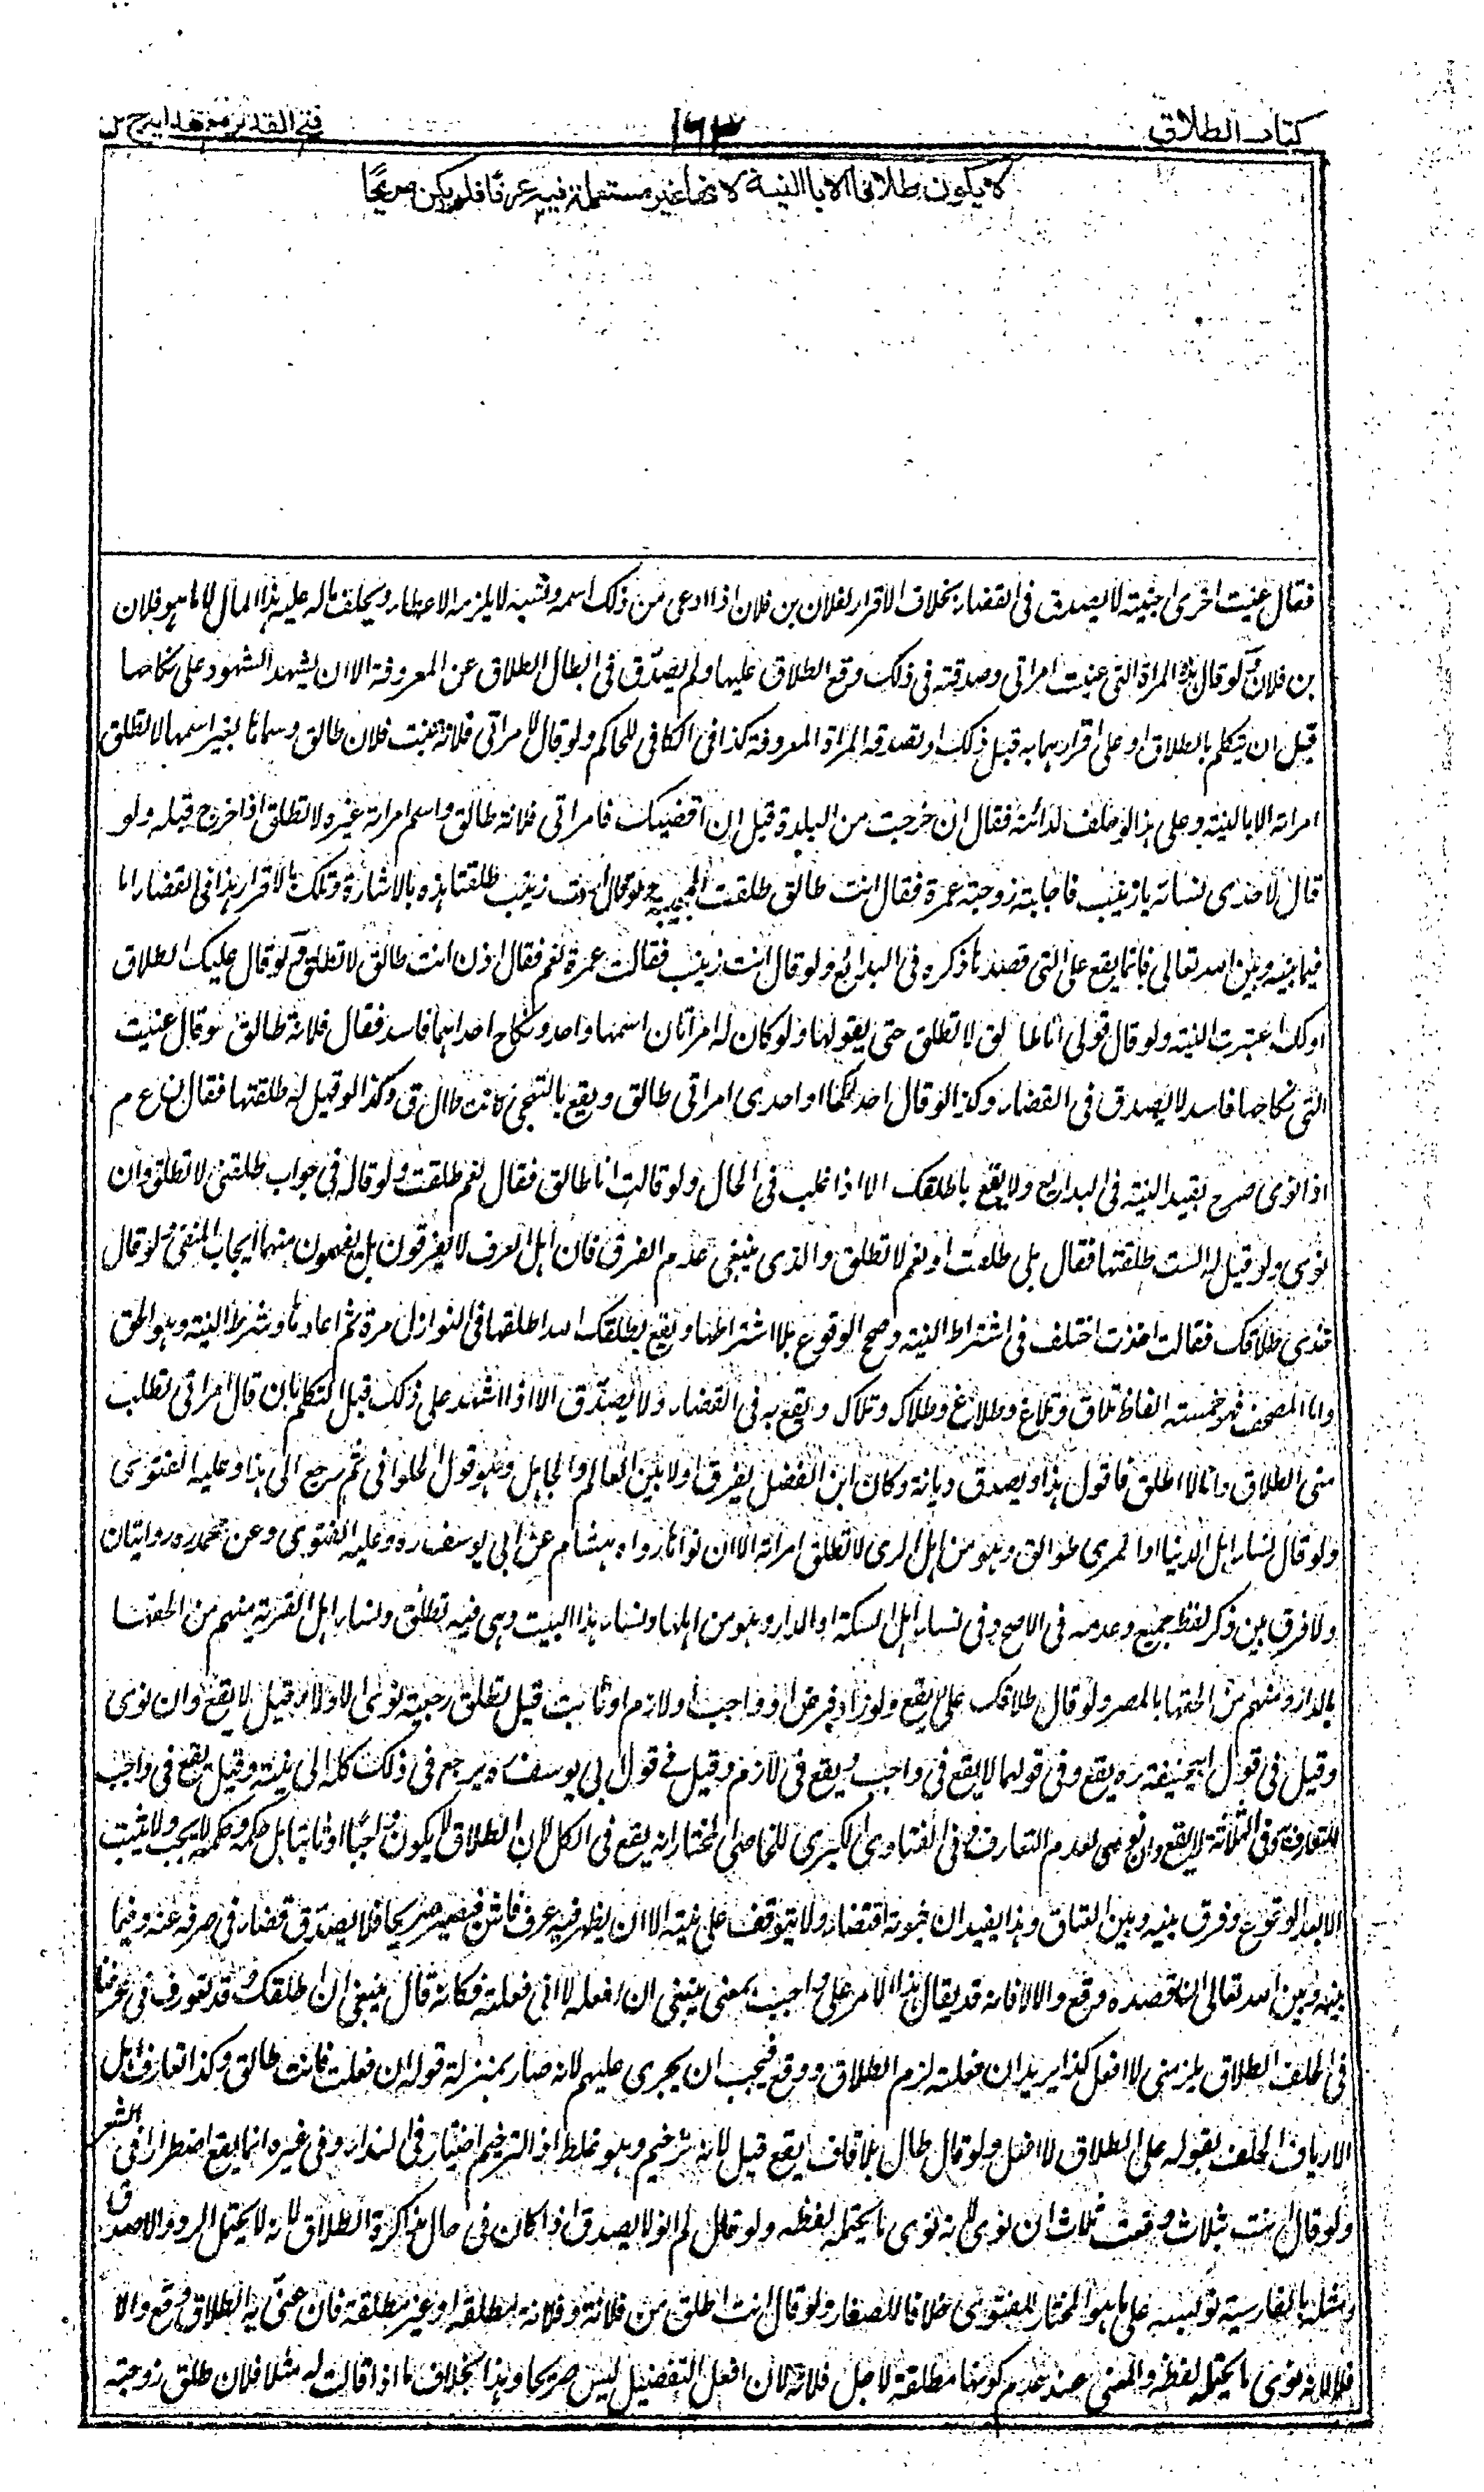 كتاب الطلاق ١٦٣ فتح القدير مع هداية ج ٢
لا يكون طلاقا الا بالنية لانها غير مستعملة فيه عرفا فلم يكن صريحًا
فقال عنيت اخرى اجنبية لا يصدق فى القضاء بخلاف الاقرار لفلان بن فلان اذا ادعى من ذلك اسمه ونسبه لا يلزمه الاعطاء ويحلف ما له عليه هذا المال لا ما هو فلان
بن فلان ولو قال هذه المرأة التى عنيت امراتى وصدقته فى ذلك وقع الطلاق عليها ولم يصدّق فى ابطال الطلاق عن المعروفة الا ان يشهد الشهود على نكاحها
قبل ان يتكلم بالطلاق او على اقرارهما به قبل ذلك او تصدقه المرأة المعروفة كذا فى الكافى للحاكم ولو قال امراتى فلانة بنت فلان طالق وسماها بغير اسمها لا تطلق
امراته الا بالنية وعلى هذا لو حلف لدائنه فقال ان خرجت من البلدة قبل ان اقضيك فامراتى فلانة طالق واسم امراته غيره لا تطلق اذا خرج قبله ولو
قال لاحدى نسائه يا زينب فاجابته زوجته عمرة فقال انت طالق طلقت المجيبة ولو قال اردت زينب طلقتا هذه بالاشارة وتلك بالاقرار هذا فى القضاء اما
فيما بينه وبين الله تعالى فانما يقع على التى قصدها ذكره فى البدائع ولو قال انت زينب فقالت عمرة نعم فقال اذن انت طالق لا تطلق ولو قال عليك الطلاق
او لك اعتبرت النية ولو قال قولى انا طالق لا تطلق حتى يقولها ولو كان له امرأتان اسمهما واحد ونكاح احداهما فاسد فقال فلانة طالق وقال عنيت
التى نكاحها فاسد لا يصدق فى القضاء وكذا لو قال احدكما او احدى امراتى طالق ويقع بالتهجى كانت طال ق وكذا لو قيل له طلقتها فقال ن ع م
اذا نوى صرح بقيد النية فى البدائع ولا يقع باطلقك الا اذا غلب فى الحال ولو قالت انا طالق فقال نعم طلقت ولو قاله فى جواب طلقنى لا تطلق وان
نوى ولو قيل له الست طلقتها فقال بلى طلقت او نعم لا تطلق والذى ينبغى عدم الفرق فان اهل العرف لا يفرقون بل يفهمون منهما ايجاب المنفى ولو قال
خذى طلاقك فقالت اخذت اختلف فى اشتراط النية وصحح الوقوع بلا اشتراطها ويقع بطلقك الله اطلقها فى النوازل مرة ثم اعادها وشرط النية وهو الحق
واما المصحف فهو خمسة الفاظ تلاق وتلاغ وطلاغ وطلاك وتلاك ويقع به فى القضاء ولا يصدّق الا اذا اشهد على ذلك قبل التكلم بان قال امراتى تطلب
منى الطلاق وانا لا اطلق فاقول هذا ويصدق ديانة وكان ابن الفضل يفرق اولا بين العالم والجاهل وهو قول الحلوانى ثم رجع الى هذا وعليه الفتوى
ولو قال نساء اهل الدنيا او الرى طوالق وهو من اهل الرى لا تطلق امراته الا ان نواها رواه هشام عن ابى يوسف ره وعليه الفتوى وعن محمد ره روايتان
ولا فرق بين ذكر لفظ جميع وعدمه فى الاصح وفى نساء اهل السكة او الدار وهو من اهلها ونساء هذا البيت وهى فيه تطلق ونساء اهل القرية منهم من الحقها
بالدار ومنهم من الحقها بالمصر ولو قال طلاقك على لا يقع ولو زاد فرض او واجب او لازم او ثابت قيل تطلق رجعية نوى اولا وقيل لا يقع وان نوى
وقيل فى قول ابيحنيفة ره يقع وفى قولهما لا يقع فى واجب ويقع فى لازم وقيل فى قول ابى يوسف ره يرجع فى ذلك كله الى نيته وقيل يقع فى واجب
للتعارف وفى الثلاثة لا يقع وان نوى لعدم التعارف وفى الفتاوى الكبرى للخاصى المختار انه يقع فى الكل لان الطلاق لا يكون واجبًا او ثابتا بل حكمه وحكمه لا يجب ولا يثبت
الا بعد الوقوع وفرق بينه وبين العتاق وهذا يفيد ان ثبوته اقتضاء ولا يتوقف على نيته الا ان يظهر فيه عرف فاش فيصير صريحا فلا يصدّق قضاء فى صرفه عنه وفيما
بينه وبين الله تعالى ان قصده وقع والا لا فانه قد يقال هذا الامر على واجب بمعنى ينبغى ان افعله لا انى فعلته فكانه قال ينبغى ان اطلقك وقد تعورف فى عرفنا
فى الحلف الطلاق يلزمنى لا افعل كذا يريد ان فعلته لزم الطلاق ووقع فيجب ان يجرى عليهم لانه صار بمنزلة قوله ان فعلت فانت طالق وكذا تعارف اهل
الارياف الحلف بقوله على الطلاق لا افعل ولو قال طال بلا قاف يقع قيل لانه ترخيم وهو غلط اذ الترخيم اختيارا فى النداء وفى غيره انما يقع اضطرارا فى الشعر
ولو قال انت بثلاث وقعت ثلاث ان نوى لانه نوى ما يحتمله لفظه ولو قال لم انو لا يصدق اذا كان فى حال مذاكرة الطلاق لانه لا يحتمل الرد والا صدق
ومثله بالفارسية توبسه على ما هو المختار للفتوى خلافا للصفار ولو قال انت اطلق من فلانة وفلانة مطلقة او غير مطلقة فان عنى به الطلاق وقع والا
فلا لانه نوى ما يحتمله لفظه والمعنى عند عدم كونها مطلقة لاجل فلانة لان افعل التفضيل ليس صريحا وهذا بخلاف ما اذا قالت له مثلا فلان طلق زوجته